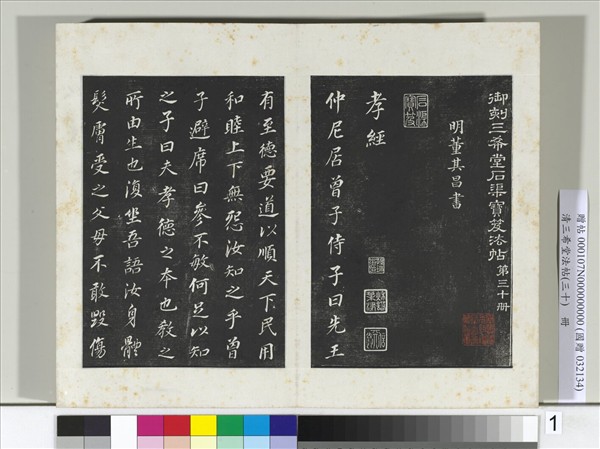 御刻三希堂石渠寶笈法帖第三十册
明董其昌書
孝經
仲尼居曾子侍子曰先王
有至德要道以順天下民用
和睦上下無怨汝知之乎曾
子避席曰參不敏何足以知
之子曰夫孝德之本也教之
所由生也復坐吾語汝身體
髮膚受之父母不敢毀傷
贈帖 000107N000000000 (國贈 032134)
清三希堂法帖(三十) 冊
1